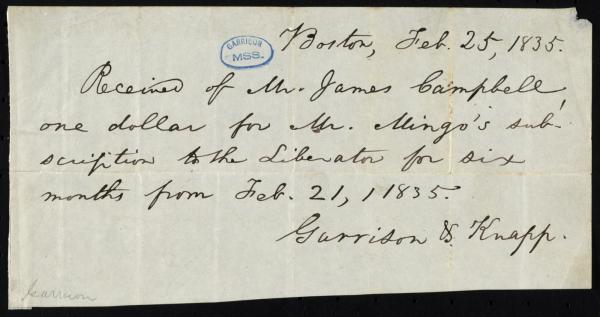 Boston, Feb. 25, 1835.
GARRISON
MSS.
Received of Mr. James Campbell,
one dollar for Mr. Mingo's sub-
scription to the Liberator for six
months from Feb. 21, 1835.
Garrison & Knapp.
Garrison